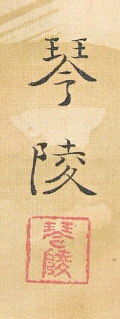 琴陵
琴陵